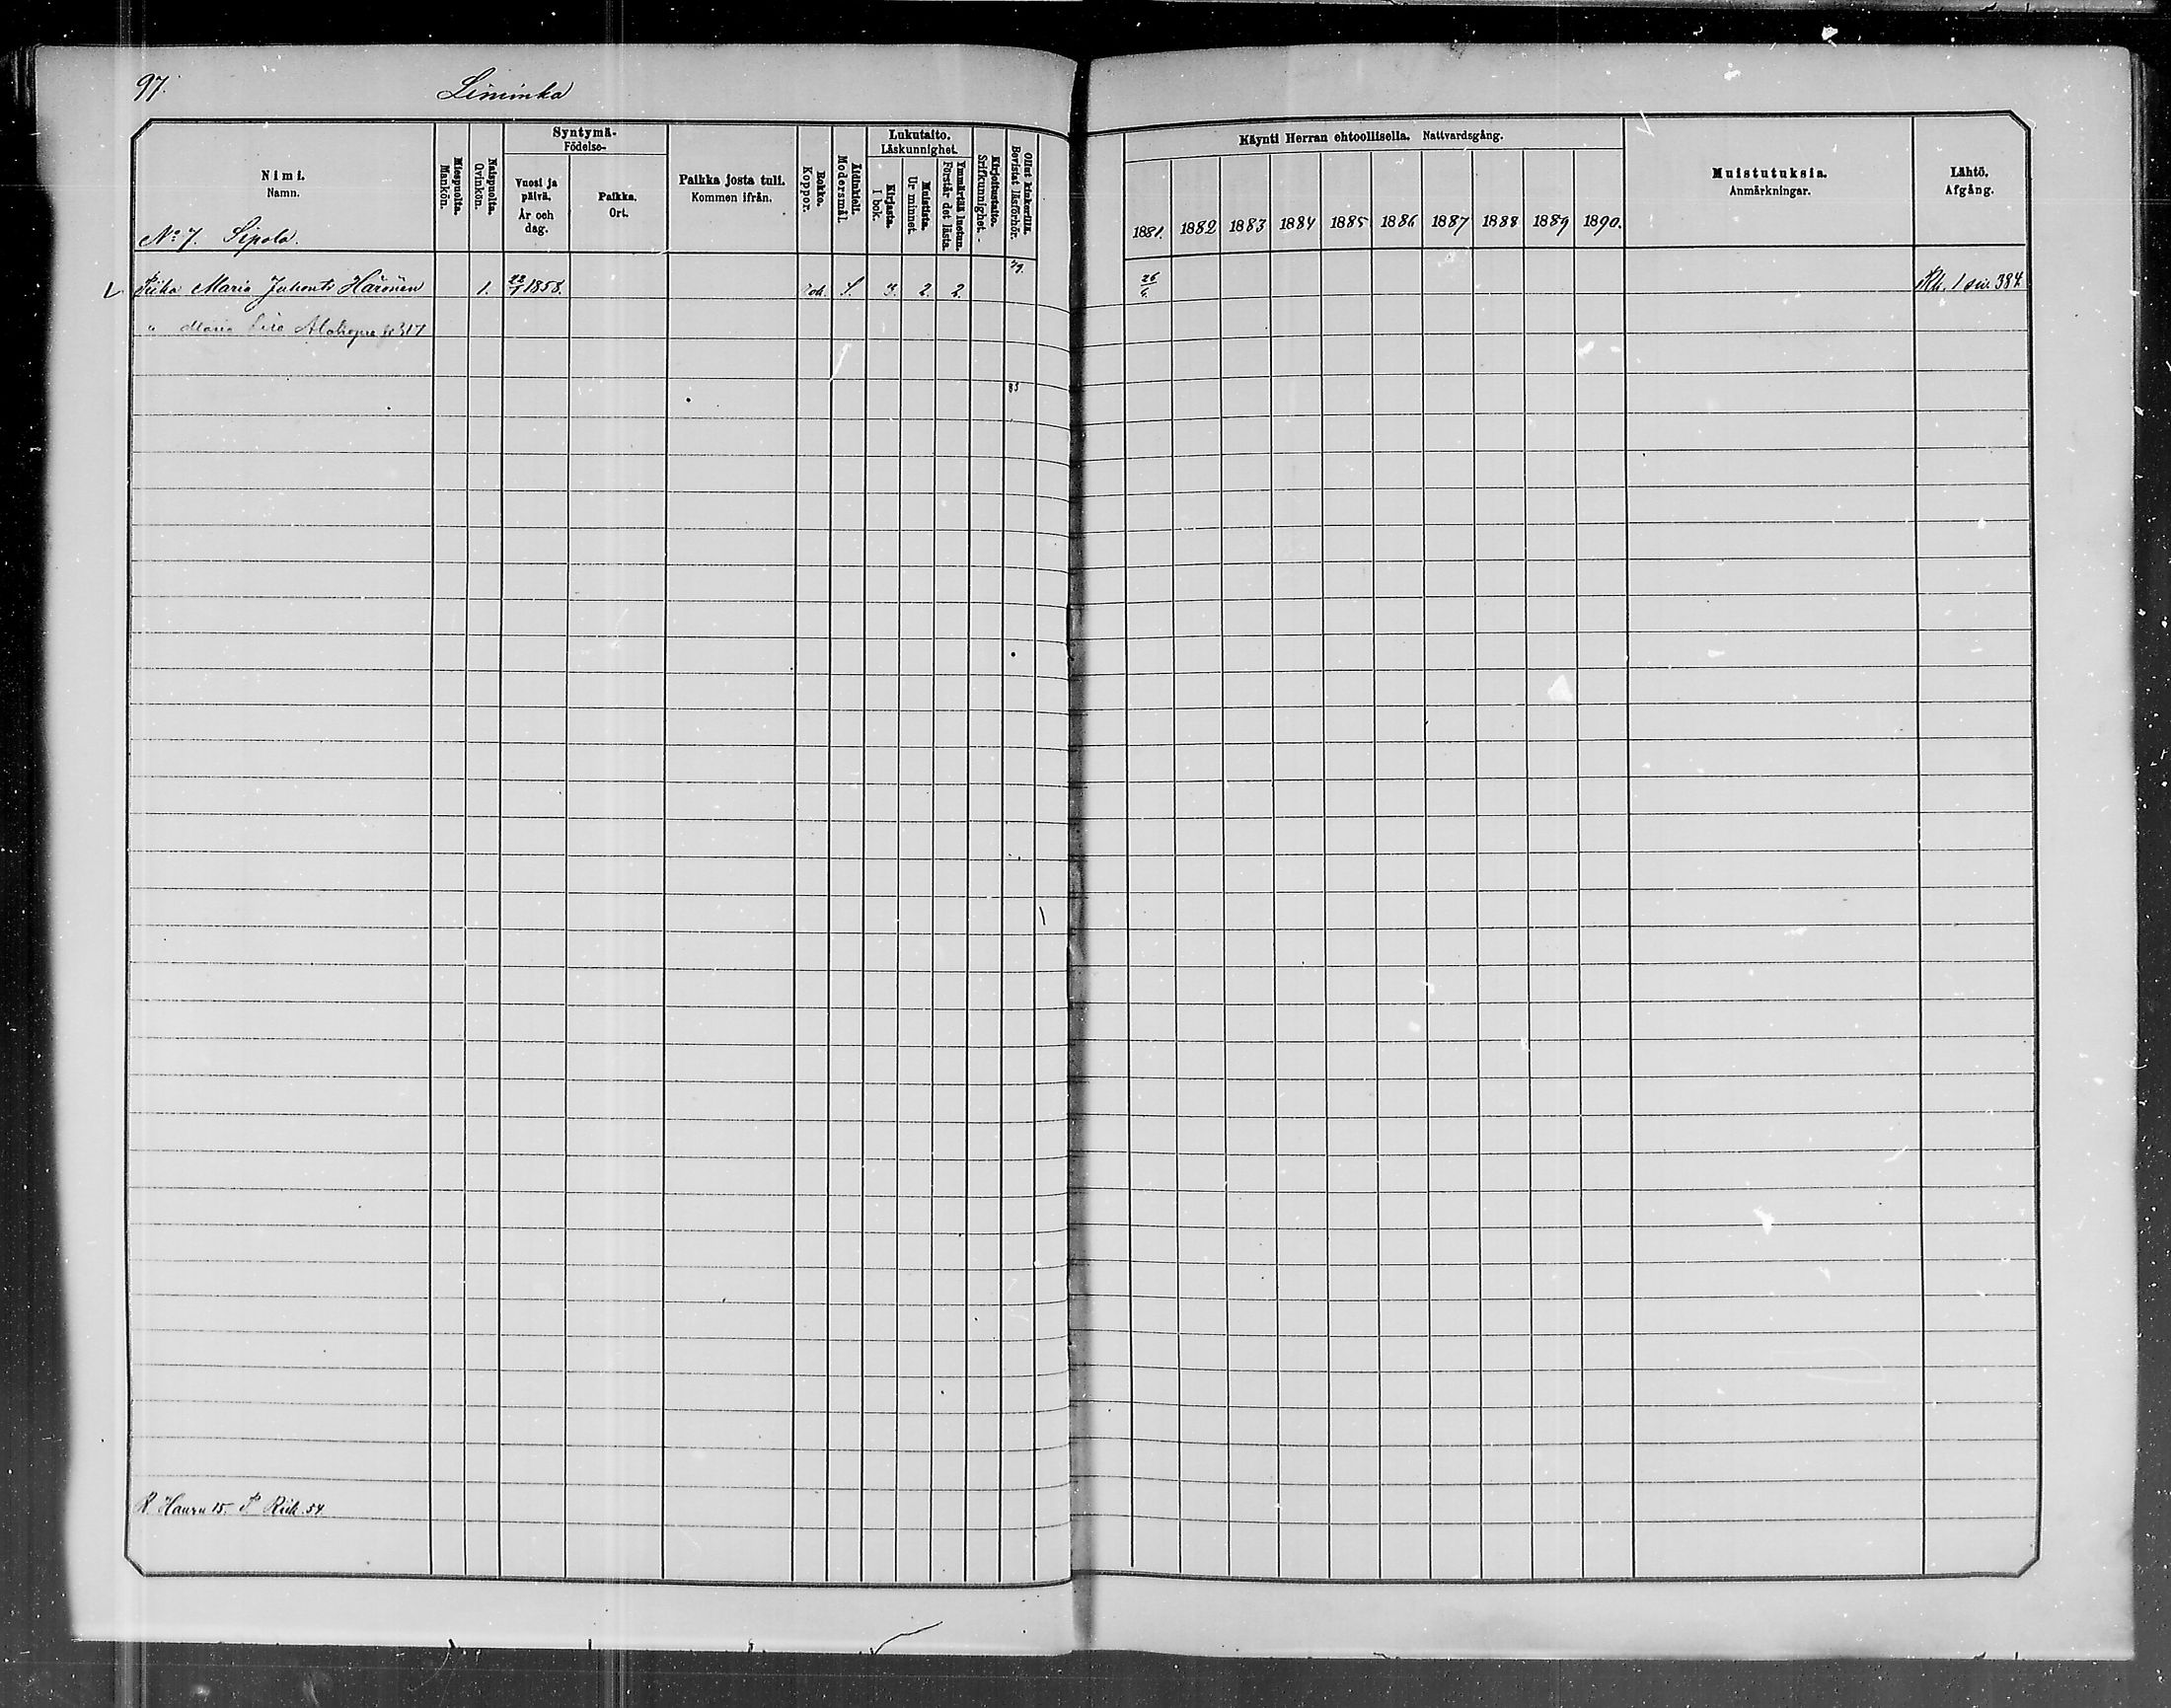 97.
Liminka
Nimi.
Namn.
Miespuolta.
Mankön.
Naispuolta.
Qvinkön.
Syntymä-
Födelse-
Vuosi ja
päivä.
År och
dag.
Paikka.
Ort.
Paikka josta tuli.
Kommen ifrån.
Rokko.
Koppor.
Äidinkieli.
Modersmål.
Lukutaito.
Läskunnighet.
Kirjasta.
I bok.
Muistista.
Ur minnet.
Ymmärtää luetun.
Förstår det lästa.
Kirjoitustaito.
Srifkunnighet.
Ollut kinkerillä.
Bevistat läsförhör.
Käynti Herran ehtoollisella. Nattvardsgång.
1881. 1882 1883 1884 1885 1886 1887 1888 1889 1890.
Muistutuksia.
Anmärkningar.
Lähtö.
Afgång.
No 7. Sipola.
79.
Piika Maria Juhont. Härönen 1. 22/1 1858. rok. S. 3. 2. 2. 26/6. Rk. 1 siv. 384
" Maria 317
83
R. Hauru 15. P. Riik. 54.